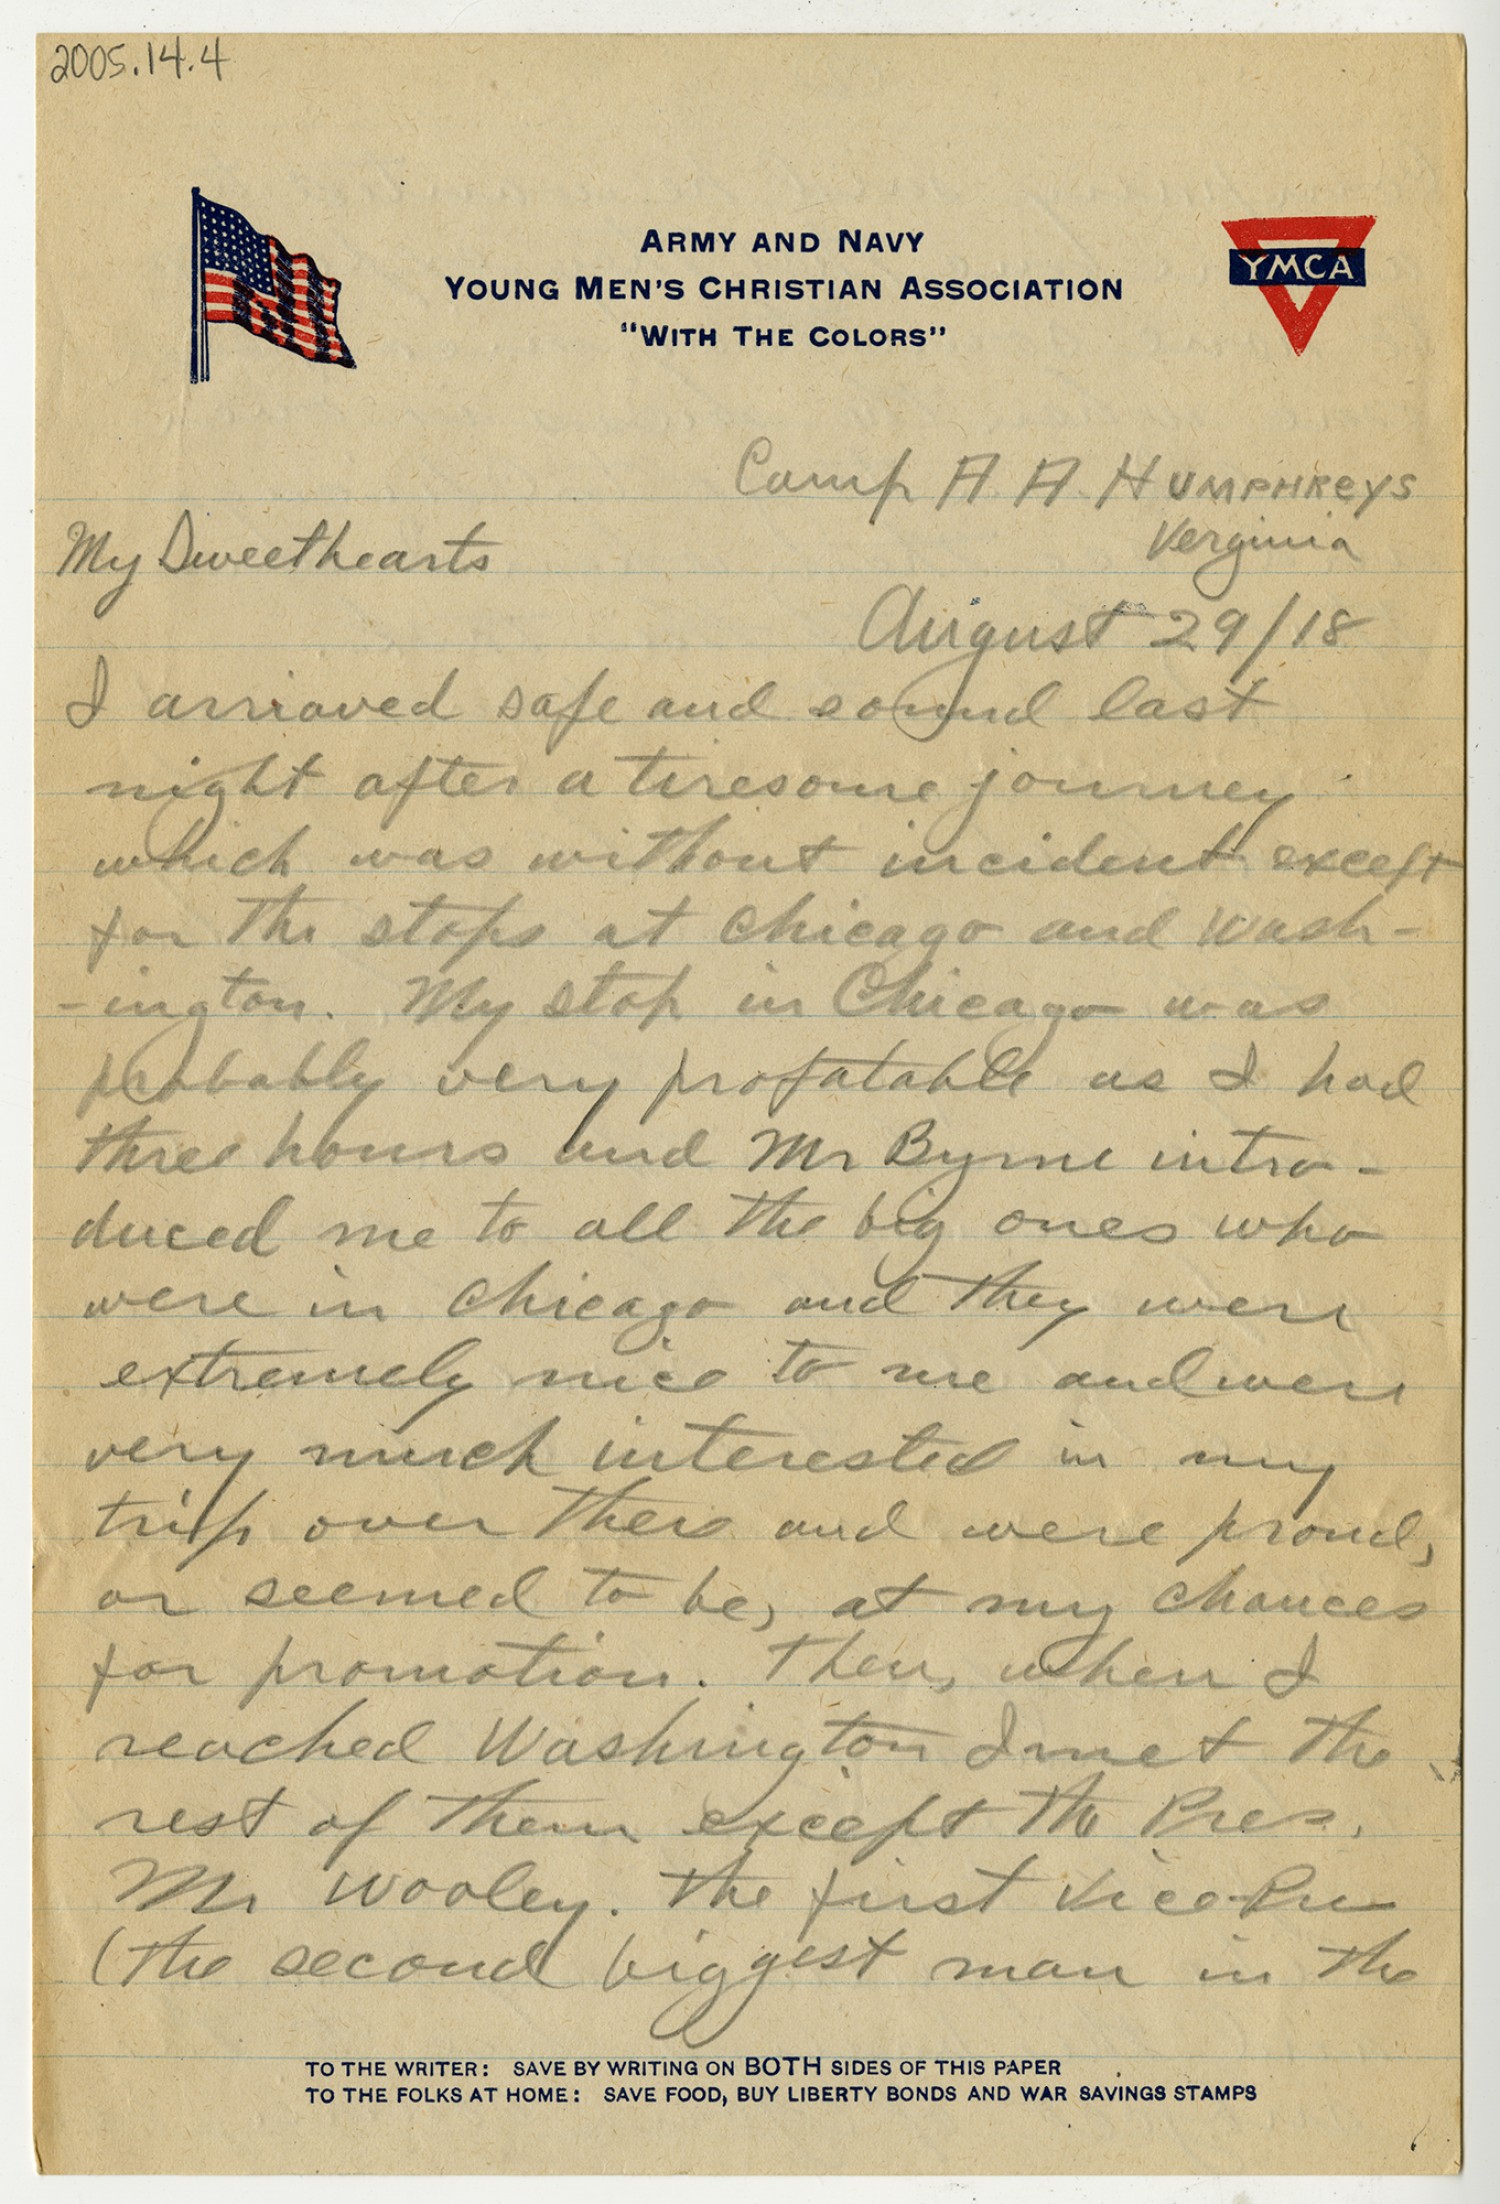 2005.14.4
ARMY AND NAVY
YOUNG MEN'S CHRISTIAN ASSOCIATION
"WITH THE COLORS"
YMCA
Camp A A HUMPHReYS
Verginia
My Sweethearts
August 29/18
I arriaved safe and sound last
night after a tiresome journey
which was without incident except
for the stops at Chicago and Wash-
-ington. My stop in Chicago was
probably very profatable as I had
three hours and Mr Byrne intro-
duced me to all the big ones who
were in Chicago and they were
extremely nice to me and were
very much interested in my
trip over there and were proud,
or seemed to be, at my chances
for promotion. Then, when I
reached Washington I met the
rest of them except the Pres.
Mr Wooley. The first Vice-Pre
(the second biggest man in the
TO THE WRITER: SAVE BY WRITING ON BOTH SIDES OF THIS PAPER
TO THE FOLKS AT HOME: SAVE FOOD, BUY LIBERTY BONDS AND WAR SAVINGS STAMPS